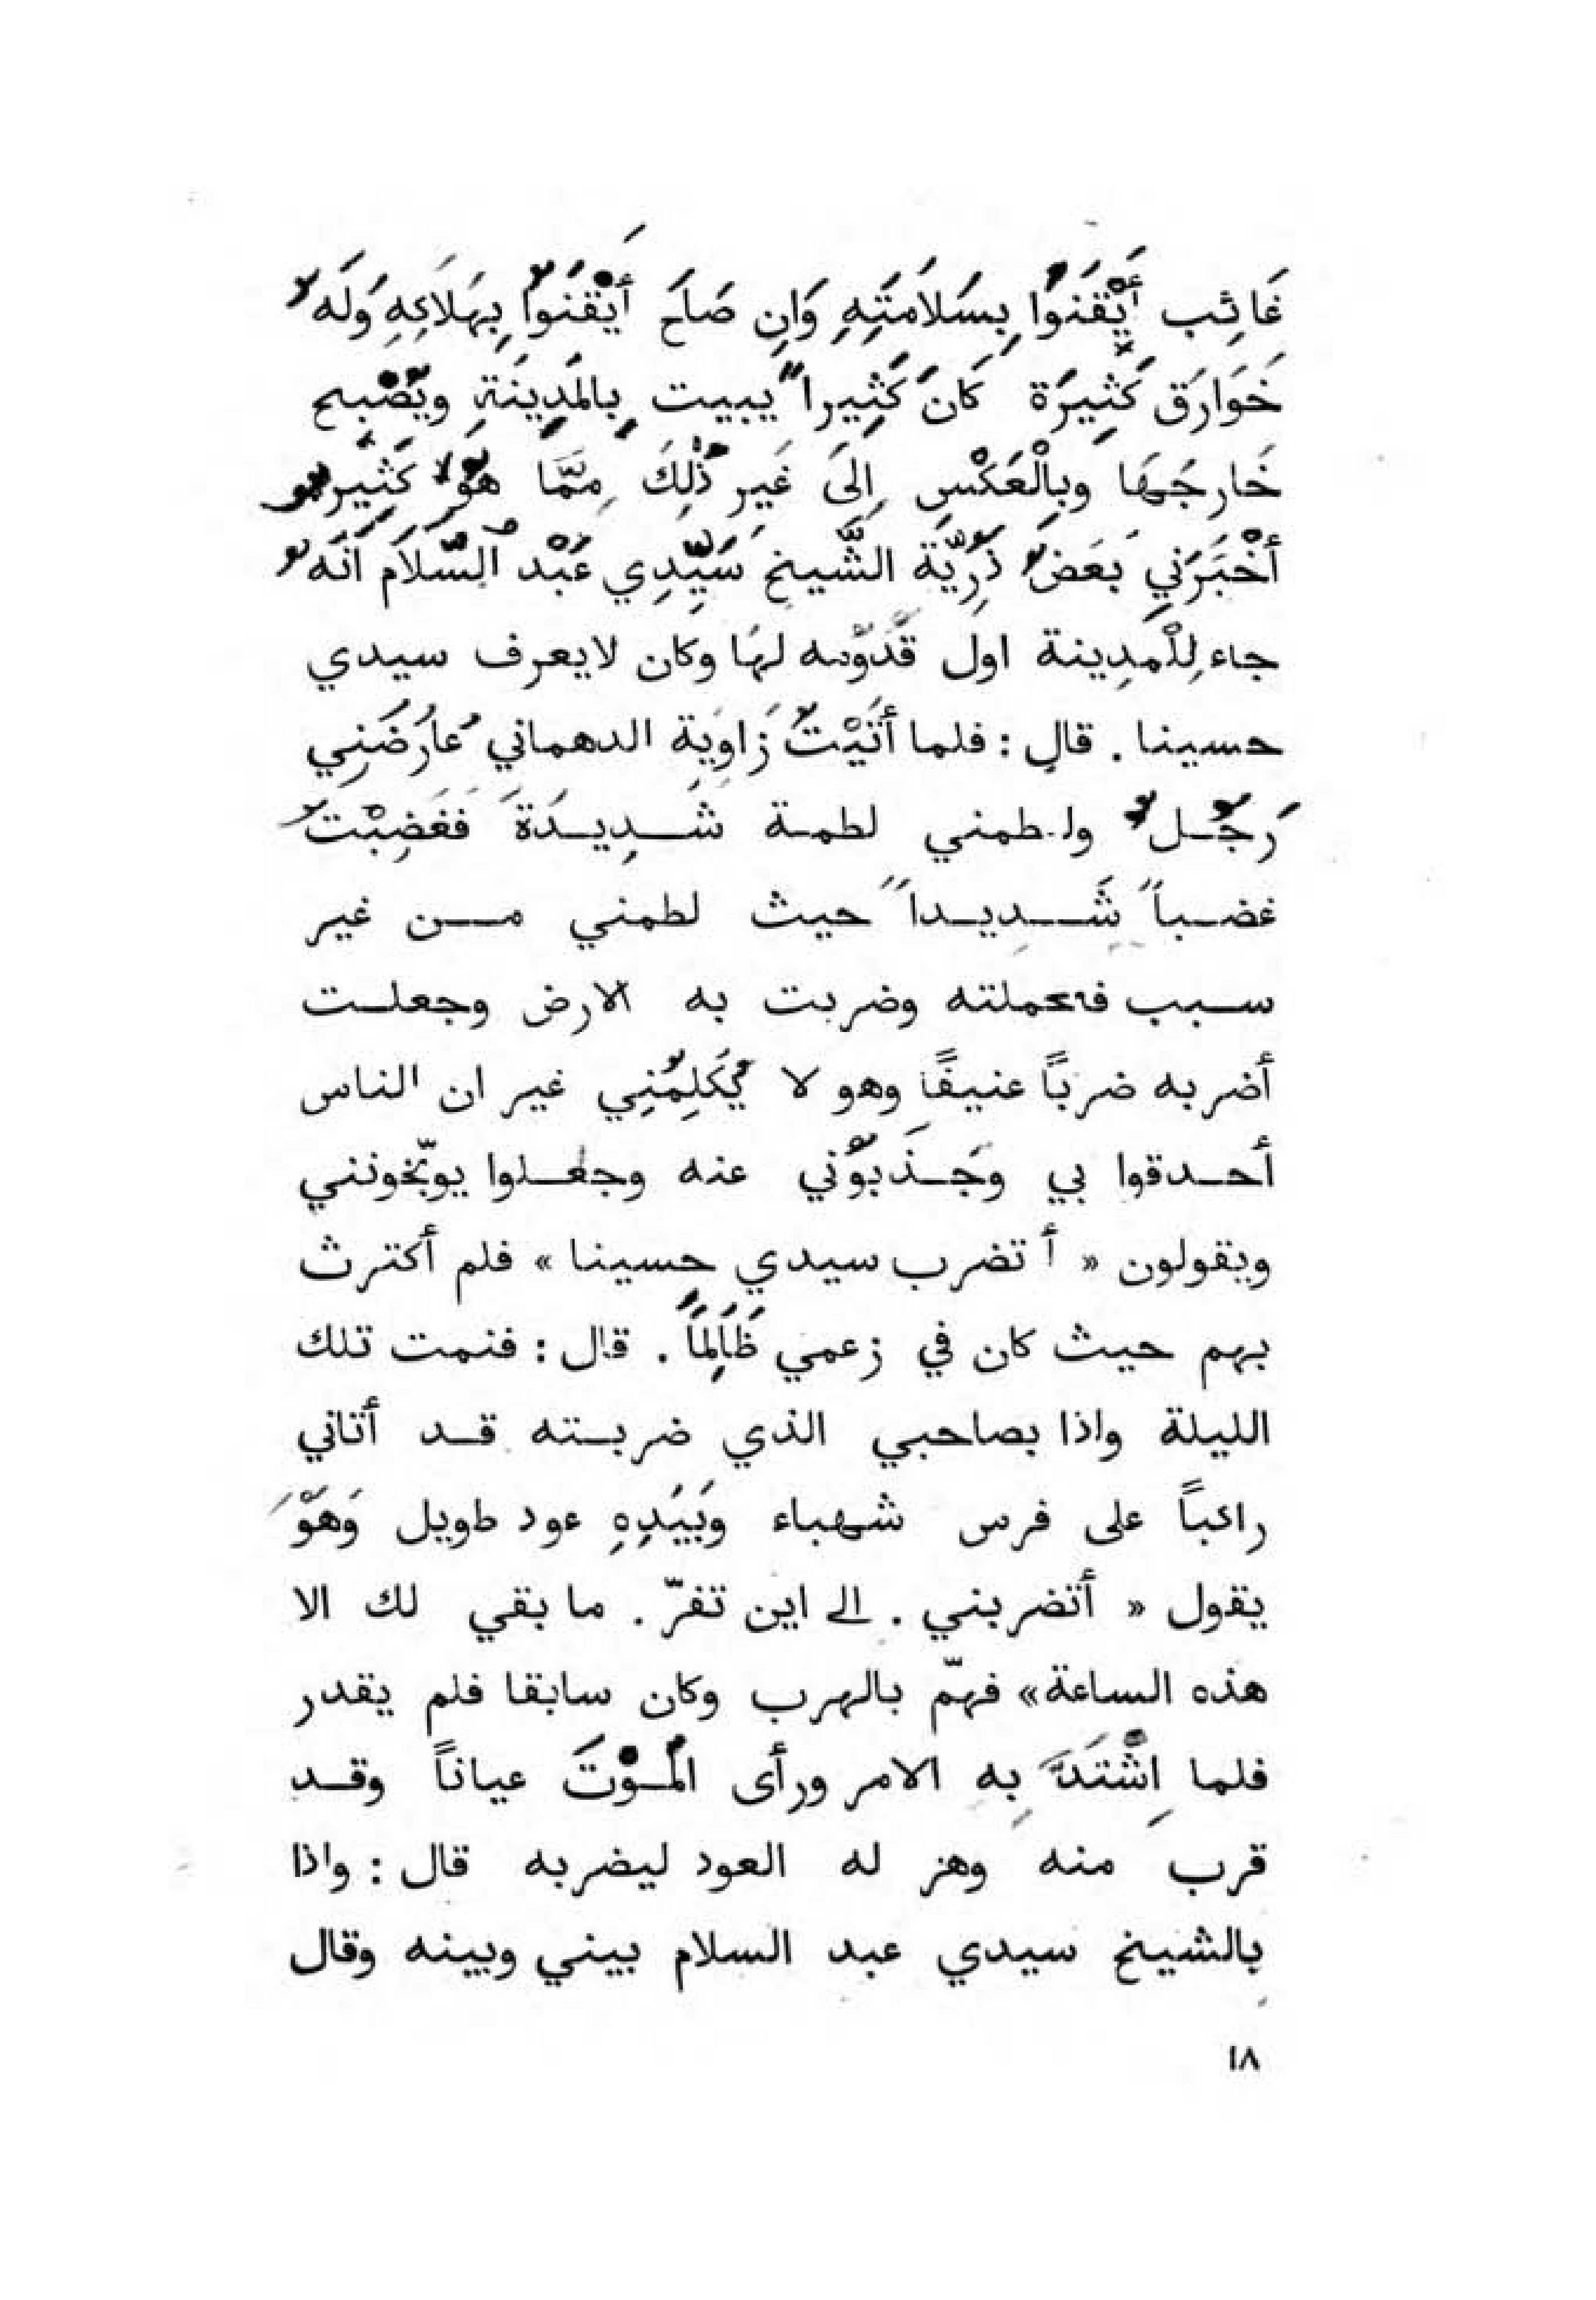 غَائِب أَيْقَنُوا بِسَلاَمَتِهِ وَانِ صَاحَ أَيْقَنُوا بِهَلَاكِهِ وَلَهُ
خَوَارَق كَثِيرَة كَانَ كَثِيراً يبيت بِالمَدِينَةِ ويُصْبح
خَارجَهَا وبِالْعَكْسِ إِلَى غَير ذُلِكَ مِمَّا هُوَ كَثِير
أخْبَرَنِي بَعَضُ ذُرِيَّة الشَّيخ سَيِّدِي عَبْد السَّلاَم انَهُ
جاء لِلْمدِينة اول قُدُومه لهَا وكان لايعرف سيدي
حسينا . قال : فلما أتَيْتُ زَاوِيَة الدهماني عَارَضَنِي
رَجُــل ولطمني لطمة شــدِيــدَة فَغَضِبْتُ
غضــباً شَــدِيــداً حيث لطمني مــن غير
ســبب فاحتملته وضربت به الارض وجعلــت
أضربه ضربًا عنيفًا وهو لا يُكَلِمُنِي غير ان الناس
أحــدقوا بي وَجَــذَبُوْني عنه وجعــلوا يوبّخونني
ويقولون « أ تضرب سيدي حسينا » فلم أكترث
بهم حيث كان في زعمي ظَالِماً . قال : فنمت تلك
الليلة واذا بصاحبي الذي ضربــته قــد أتاني
راكباً على فرس شهباء وَبَيَدِهِ عود طويل وَهْوَ
يقول « أتضربني . الى اين تفرّ . ما بقي لك الا
هذه الساعة» فهمّ بالهرب وكان سابقا فلم يقدر
فلما اِشْتَدَّ بِه الامر ورأى الْمُــوْتَ عياناً وقــد
قرب منه وهز له العود ليضربه قال : واذا
بالشيخ سيدي عبد السلام بيني وبينه وقال
١٨